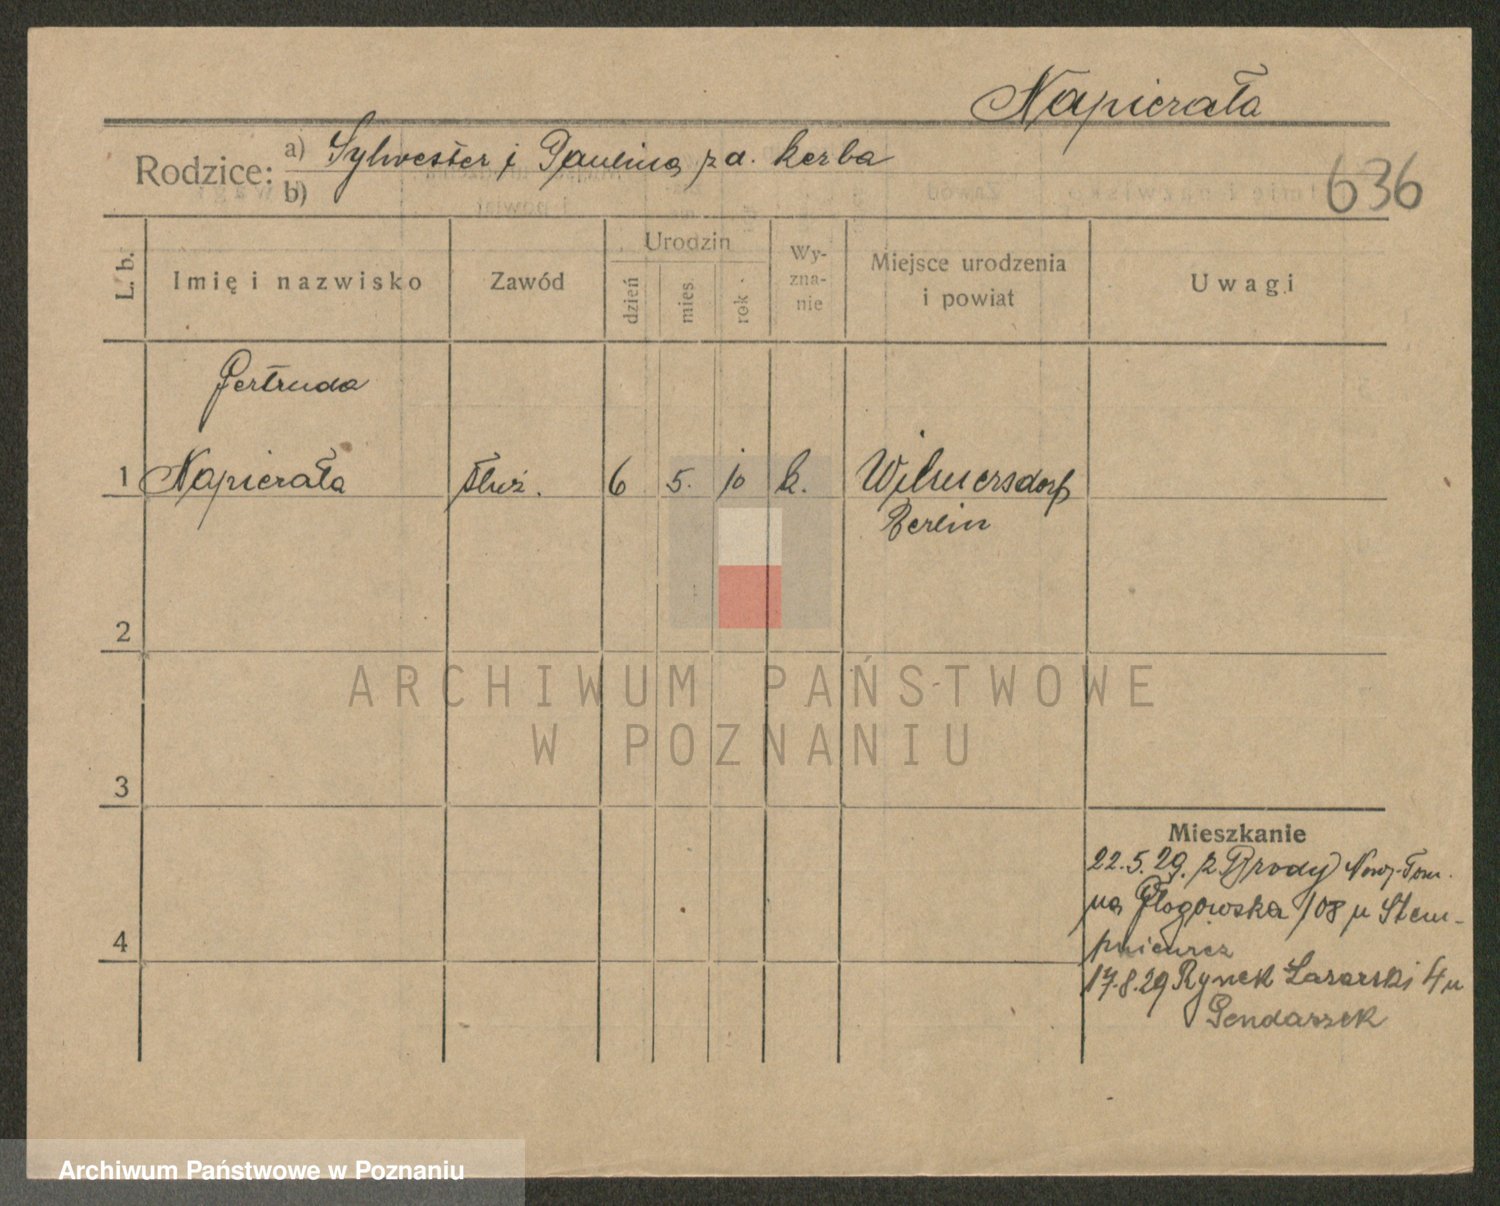 Napierała
Rodzice: a) Sylwester i Paulina z d. Kerba
b)
636
L. b.
Imię i nazwisko
Zawód
Urodzin
dzień
mies.
rok
Wy-
zna-
nie
Miejsce urodzenia
i powiat
Uwagi
Gertruda
1 Napierała służ. 6 5. 10 k. Wilmersdorf
Berlin
2
3
4
Mieszkanie
22.5.29. z Brody Nowy-Tom.
na Głogowska 108 u Stem-
pniewicz
17.8.29 Rynek Łazarski 4 u
Gendaszek
ARCHIWUM PAŃSTWOWE
W POZNANIU
Archiwum Państwowe w Poznaniu